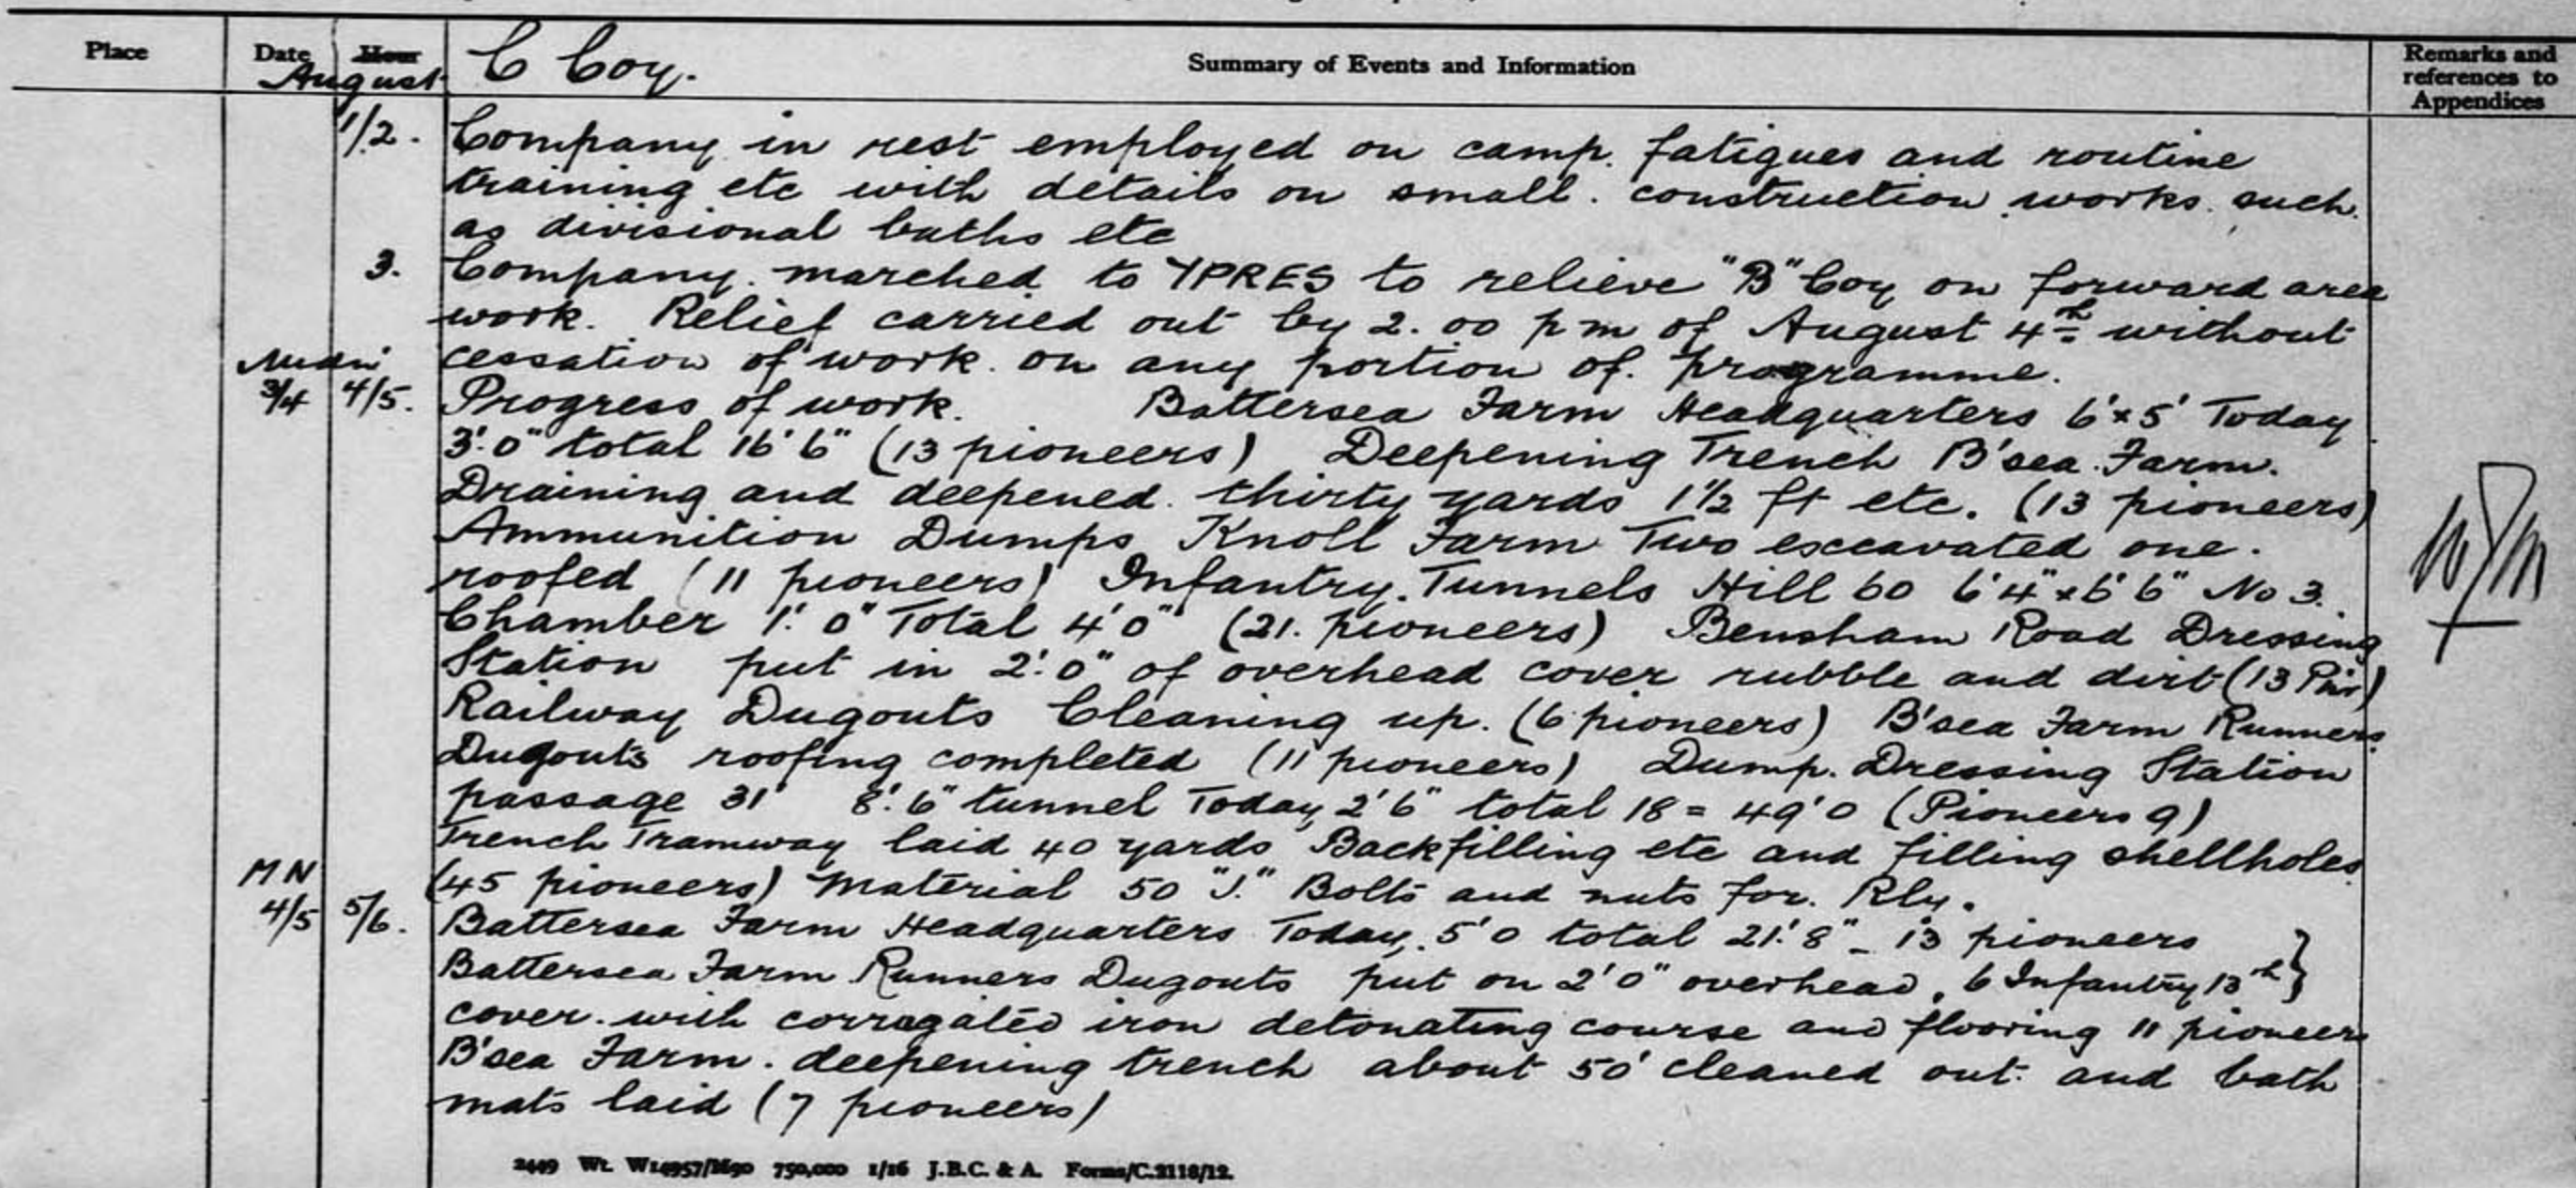 Place Date Hour Summary of Events and Information Remarks and references to Appendices
August C Coy.
1/2. Company in rest employed on camp. fatigues and routine
training etc with details on small. construction works. such.
as divisional baths etc
3. Company. marched to YPRES to relieve "B" Coy on forward area
work. Relief carried out by 2.00 pm of August 4th without
cessation of work. on any portion of. programme.
3/4 4/5. Progress of work. Battersea Farm Headquarters 6'x5' Today
3'.0" total 16'6" (13 pioneers) Deepening Trench B'sea. Farm.
Draining and deepened. thirty yards 1½ ft etc. (13 pioneers)
Ammunition Dumps Knoll Farm Two excavated one.
roofed (11 pioneers) Infantry. Tunnels Hill 60 6'4"x6'6" No 3.
Chamber 1'.0" Total 4'0" (21. pioneers) Bensham Road Dressing
Station put in 2'.0" of overhead cover rubble and dirt (13 )
Railway Dugouts Cleaning up. (6 pioneers) B'sea Farm Runners
Dugouts roofing completed (11 pioneers) Dump. Dressing Station
passage 31' 8'.6" tunnel Today 2'6" total 18 = 49'0 (Pioneers 9)
Trench Tramway laid 40 yards Backfilling etc and filling shellholes
MN (45 pioneers) Material 50 "J." Bolts and nuts for. Rly.
4/5 5/6. Battersea Farm Headquarters Today. 5'0 total 21'.8" - 13 pioneers
Battersea Farm Runners Dugouts put on 2'0" overhead. 6 Infantry 13th }
cover. with corrugated iron detonating course and flooring 11 pioneers
B'sea Farm. deepening trench about 50' cleaned out. and bath
mats laid (7 pioneers)
2449 Wt. W14957/M90 750,000 1/16 J.B.C. & A. Forms/C.2118/12.